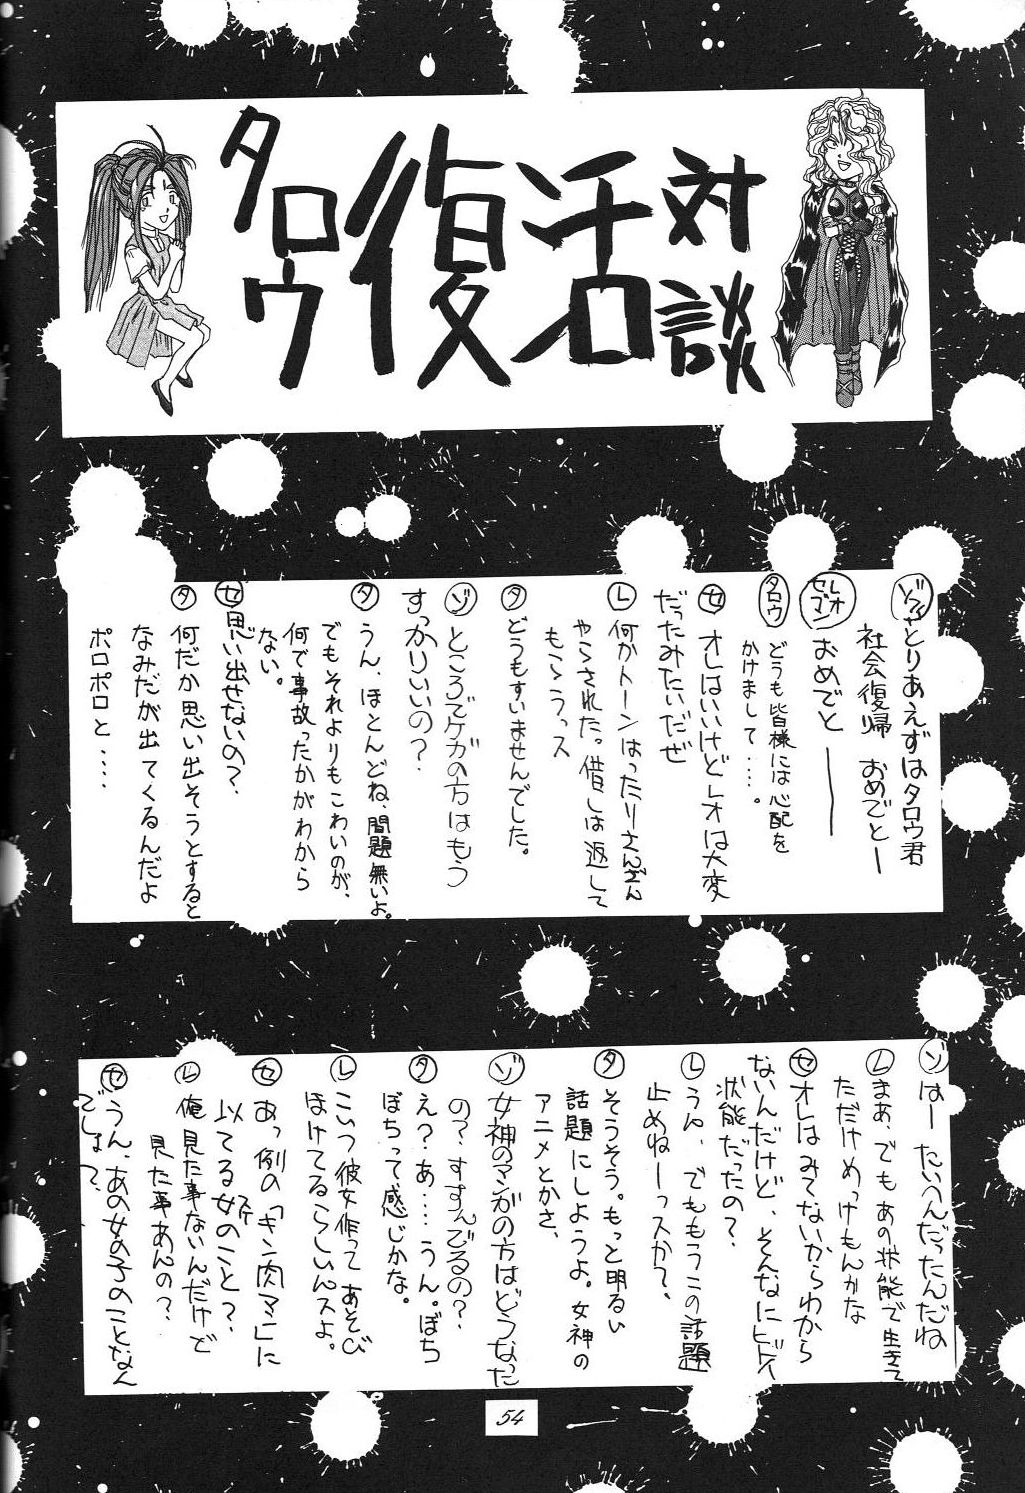 タロウ復活対談
ゾフィ とりあえずはタロウ君
社会復帰 おめでとー
レオ セブン おめでとー
タロウ どうも皆様には心配を
かけまして‥‥。
セ オレはいいけどレオは大変
だったみたいだぜ
レ 何かトーンはったりさんざん
やらされた。借しは返して
もらうっス
タ どうもすいませんでした。
ゾ ところでケガの方はもう
すっかりいいの?
タ うん、ほとんどね、問題無いよ。
でもそれよりもこわいのが、
何で事故ったかがわから
ない。
セ 思い出せないの?
タ 何だか思い出そうとすると
なみだが出てくるんだよ
ポロポロと‥‥
ゾ はー たいへんだったんだね
レ まあ、でもあの状態で生きて
ただけめっけもんかな
セ オレはみてないからわから
ないんだけど、そんなにヒドイ
状態だったの?
レ うん、でももうこの話題
止めねーっスか?
タ そうそう。もっと明るい
話題にしようよ。女神の
アニメとかさ、
ゾ 女神のマンガの方はどうなった
の?、すすんでるの?
タ え?あ‥‥うん。ぼち
ぼちって感じかな。
レ こいつ彼女作って あそび
ほけてるらしいんスよ。
セ あっ例の「キン肉マン」に
以てる女のこと?
レ 俺見た事ないんだけど
見た事あんの?
セ うん、あの女の子のことなん
でしょ?
54